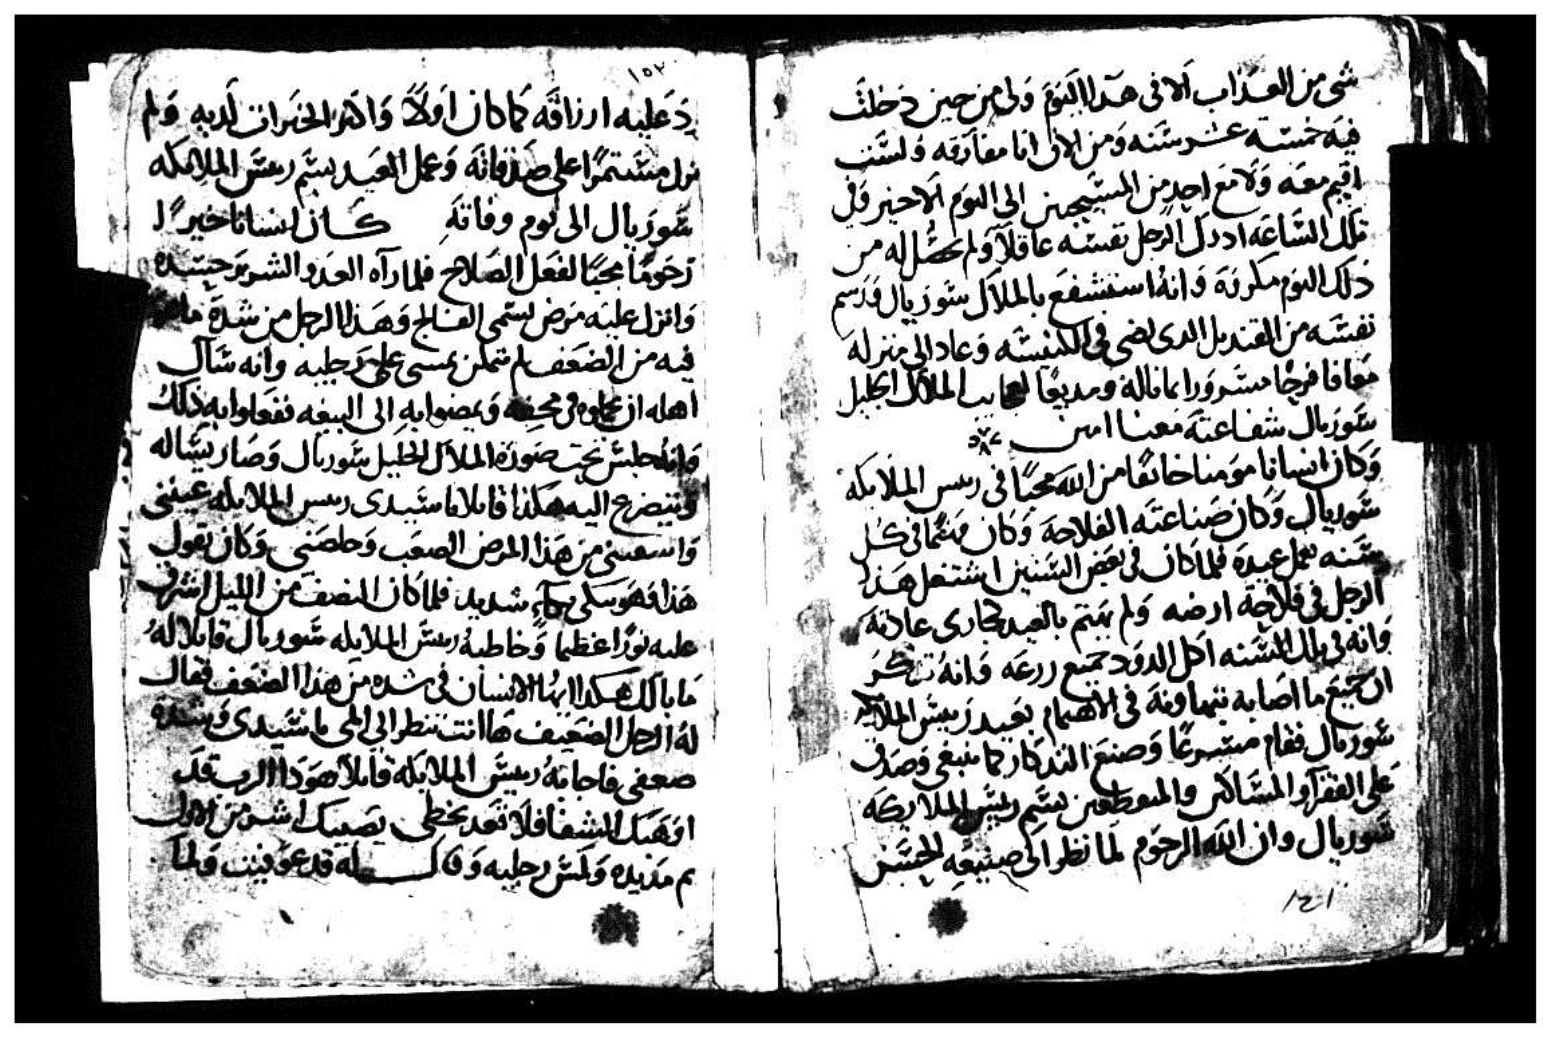 شى من العذاب الا فى هذا اليوم ولى من حين دخلت
فيه خمسه عشر سنه ومن الان انا مفارقه ولست
اقيم معه ولا مع احد من المسيحيين الى اليوم الاخير وفى
تلك الساعه ادرك الرجل نفسه عاقلا ولم يحصل له من
ذلك اليوم مكروه وانه استشفع بالملاك سوريال ورسم
نفسه من القنديل الدى يضى فى الكنيسه وعاد الى منزله
معافا فرحا مسرورا بما ناله ومديعا لعجايب الملاك الجليل
سوريال شفاعته معنا امين
وكان انسانا مومنا خايفا من الله محبا فى رييس الملايكه
سوريال وكان صناعته الفلاحه وكان مهتما فى كل
سنه بعمل عيده فلما كان فى بعض السنين اشتغل هذا
الرجل فى فلاحة ارضه ولم يهتم بالعيد كجارى عادته
وانه فى تلك السنه اكل الدود جميع زرعه وانه تذكر
ان جميع ما اصابه بتهاونه فى الاهتمام بعيد رييس الملايكه
سوريال فقام مسرعا وصنع التدكار كما ينبغى وصدق
على الفقرا والمساكين والمنقطعين بسم رييس الملايكه
سوريال وان الله الرحوم لما نظر الى صنيعه الحسن
١٥٢
رد عليه ارزاقه كما كان اولا واكثر الخيرات لديه ولم
يزل مستمرا على صدقاته وعمل العيد بسم رييس الملايكه
سوريال الى يوم وفاته كان انسانا خيرا
رحوما محبا لفعل الصلاح فلما رآه العدو الشرير حسده
وانزل عليه مرض يسمى الفالج وهذا الرجل من شدة ما
فيه من الضعف لم يتمكن يمشى على رجليه وانه سال
اهله ان يحملوه فى محفه ويمضوا به الى البيعه ففعلوا به ذلك
وانه جلس تحت صورة الملاك الجليل سوريال وصار يساله
ويتضرع اليه هكذا قايلا يا سيدى رييس الملايكه عيننى
واسعفنى من هذا المرض الصعب وخلصنى وكان يقول
هذا وهو يبكى بكآء شديد فلما كان النصف من الليل اشرق
عليه نورا عظيما وخاطبه رييس الملايكه سوريال قايلا له
ما بالك هكدا ايها الانسان فى شده من هذا الضعف فقال
له الرجل الضعيف ها انت تنظر الى المى يا سيدى وشده
ضعفى فاجابه رييس الملايكه قايلا هودا الرب قد
اوهبك الشفا فلا تعد تخطى يصيبك اشر من الاول
ثم مد يده ولمس رجليه وقال له قد عوفيت ولما